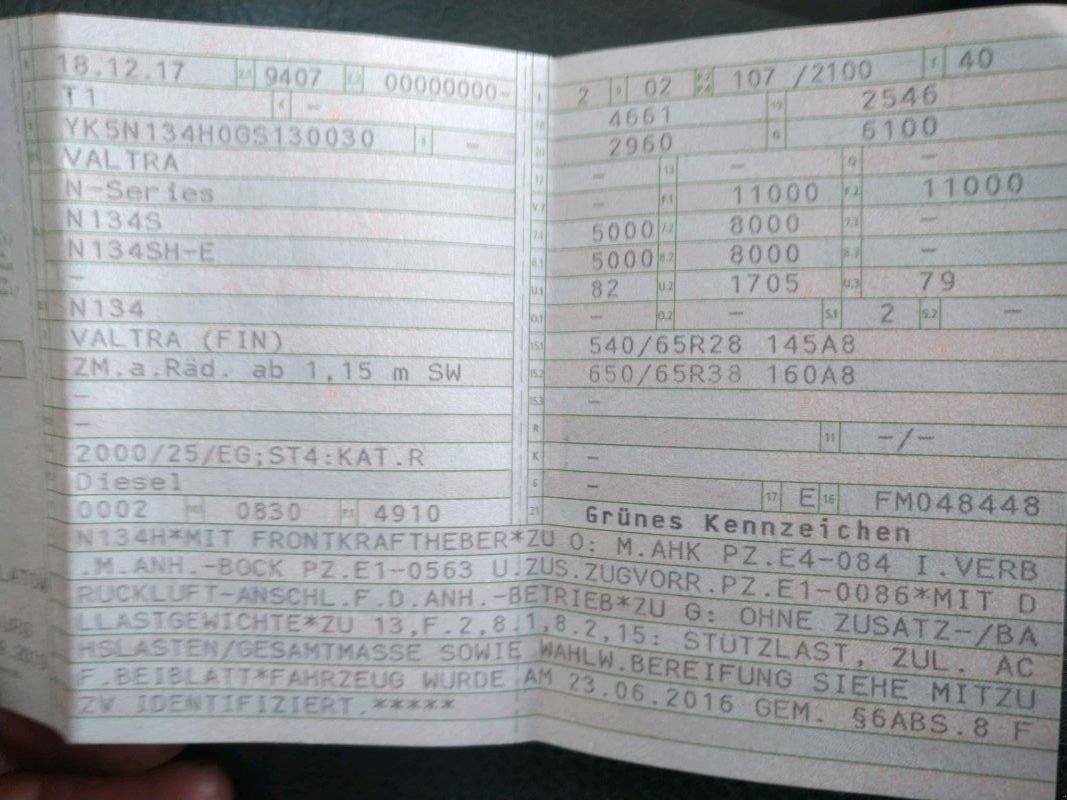 18.12.17 2.1 9407 2.2 00000000-
T1 4 -
YK5N134H0GS130030 3 -
VALTRA
N-Series
N134S
N134SH-E
-
N134
VALTRA (FIN)
ZM.a.Räd. ab 1,15 m SW
-
-
2000/25/EG;ST4:KAT.R
Diesel
0002 0830 P.1 4910
L 2 9 02 P.2 P.4 107 /2100 T 40
18 4661 19 2546
20 2960 G 6100
12 - 13 - Q -
V.7 - F.1 11000 F.2 11000
7.1 5000 7.2 8000 7.3 -
8.1 5000 8.2 8000 8.3 -
U.1 82 U.2 1705 U.3 79
O.1 - O.2 - S.1 2 S.2 -
15.1 540/65R28 145A8
15.2 650/65R38 160A8
15.3 -
R 11 -/-
K -
6 - 17 E 16 FM048448
21 Grünes Kennzeichen
N134H*MIT FRONTKRAFTHEBER*ZU O: M.AHK PZ.E4-084 I.VERB
.M.ANH.-BOCK PZ.E1-0563 U.ZUS.ZUGVORR.PZ.E1-0086*MIT D
RUCKLUFT-ANSCHL.F.D.ANH.-BETRIEB*ZU G: OHNE ZUSATZ-/BA
LLASTGEWICHTE*ZU 13,F.2,8.1,8.2,15: STÜTZLAST, ZUL. AC
HSLASTEN/GESAMTMASSE SOWIE WAHLW.BEREIFUNG SIEHE MITZU
F.BEIBLATT*FAHRZEUG WURDE AM 23.06.2016 GEM. §6ABS.8 F
ZV IDENTIFIZIERT.*****